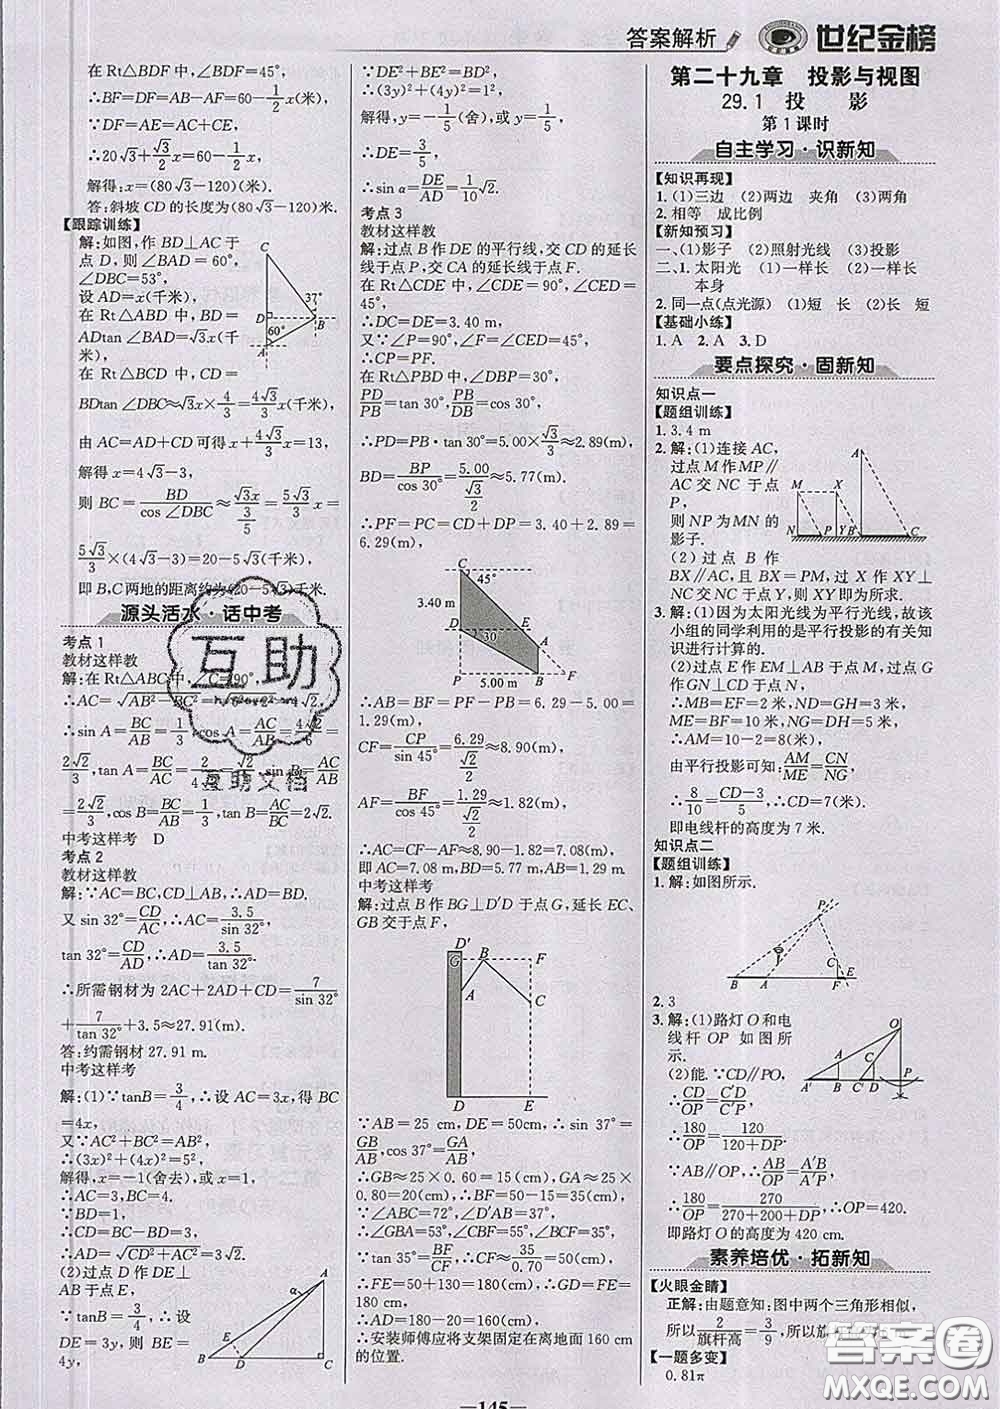 答案解析 世纪金榜
在Rt△BDF中,∠BDF=45°,
∴BF=DF=AB-AF=60-1/2x,
∵DF=AE=AC+CE,
∴20√3+√3/2x=60-1/2x,
解得:x=(80√3-120)(米).
答:斜坡CD的长度为(80√3-120)米.
【跟踪训练】
解:如图,作BD⊥AC于
点D,则∠BAD=60°,
∠DBC=53°,
设AD=x(千米),
在Rt△ABD中,BD=
ADtan∠BAD=√3x(千
米),
在Rt△BCD中,CD=
BDtan∠DBC≈√3x×4/3=4√3x/3(千米),
由AC=AD+CD可得x+4√3x/3=13,
解得x=4√3-3,
则BC=BD/cos∠DBC≈√3x/(3/5)=5√3x/3=
5√3/3×(4√3-3)=20-5√3(千米),
即B,C两地的距离约为(20-5√3)千米.
C 37° D B 60° A
源头活水·话中考
考点1
教材这样教
解:在Rt△ABC中,∠C=90°,
∴AC=√(AB²-BC²)=√(6²-2²)=4√2,
∴sin A=BC/AB=1/3,cos A=AC/AB=4√2/6=
2√2/3,tan A=BC/AC=2/4√2=√2/4,sin B=AC/AB
=2√2/3,cos B=BC/AB=1/3,tan B=AC/BC=2√2.
中考这样考 D
考点2
教材这样教
解:∵AC=BC,CD⊥AB,∴AD=BD.
又sin 32°=CD/AC,∴AC=3.5/sin 32°,
tan 32°=CD/AD,∴AD=3.5/tan 32°.
∴所需钢材为2AC+2AD+CD=7/sin 32°
+7/tan 32°+3.5≈27.91(m).
答:约需钢材27.91 m.
中考这样考
解:(1)∵tanB=3/4,∴设AC=3x,得BC
=4x,
又∵AC²+BC²=AB²,
∴(3x)²+(4x)²=5²,
解得,x=-1(舍去),或x=1,
∴AC=3,BC=4,
∵BD=1,
∴CD=BC-BD=3,
∴AD=√(CD²+AC²)=3√2.
(2)过点D作DE⊥
AB于点E,
∵tanB=3/4,∴设
DE=3y,则BE=
4y,
A α E B D C
∵DE²+BE²=BD²,
∴(3y)²+(4y)²=1²,
解得,y=-1/5(舍),或y=1/5,
∴DE=3/5,
∴sin α=DE/AD=1/10√2.
考点3
教材这样教
解:过点B作DE的平行线,交CD的延长
线于点P,交CA的延长线于点F.
在Rt△CDE中,∠CDE=90°,∠CED=
45°,
∴DC=DE=3.40 m,
又∵∠P=90°,∠F=∠CED=45°,
∴CP=PF.
在Rt△PBD中,∠DBP=30°,
PD/PB=tan 30°,PB/DB=cos 30°,
∴PD=PB·tan 30°=5.00×√3/3≈2.89(m).
BD=BP/cos 30°=5.00/(√3/2)≈5.77(m).
∴PF=PC=CD+DP=3.40+2.89=
6.29(m).
C 45° 3.40 m D E 30 A P 5.00 m B F
∴AB=BF=PF-PB=6.29-5.00=
1.29(m).
CF=CP/sin 45°=6.29/(√2/2)≈8.90(m),
AF=BF/cos 45°=1.29/(√2/2)≈1.82(m).
∴AC=CF-AF≈8.90-1.82=7.08(m),
即AC=7.08 m,BD=5.77 m,AB=1.29 m.
中考这样考
解:过点B作BG⊥D'D于点G,延长EC、
GB交于点F,
D' G B F A C D E
∵AB=25 cm,DE=50cm,∴sin 37°=
GB/AB,cos37°=GA/AB,
∴GB≈25×0.60=15(cm),GA≈25×
0.80=20(cm),∴BF=50-15=35(cm),
∵∠ABC=72°,∠D'AB=37°,
∴∠GBA=53°,∠CBF=55°,∠BCF=35°,
∵tan 35°=BF/CF,∴CF≈35/0.70=50(cm),
∴FE=50+130=180(cm),∴GD=FE=
180(cm),∴AD=180-20=160(cm),
∴安装师傅应将支架固定在离地面160 cm
的位置.
第二十九章 投影与视图
29.1 投 影
第1课时
自主学习·识新知
【知识再现】
1.(1)三边 (2)两边 夹角 (3)两角
2.相等 成比例
【新知预习】
一、(1)影子 (2)照射光线 (3)投影
二、1.太阳光 (1)一样长 (2)一样长
本身
2.同一点(点光源) (1)短 长 (2)长 短
【基础小练】
1.A 2.A 3.D
要点探究·固新知
知识点一
【题组训练】
1.3.4 m
2.解:(1)连接AC,
过点M作MP∥
AC交NC于点
P,
则NP为MN的
影子.
(2)过点B作
BX∥AC,且BX=MP,过X作XY⊥
NC交NC于点Y,则XY即为所求.
A M X N P Y B C
3.解:(1)因为太阳光线为平行光线,故该
小组的同学利用的是平行投影的有关知
识进行计算的.
(2)过点E作EM⊥AB于点M,过点G
作GN⊥CD于点N,
∴MB=EF=2米,ND=GH=3米,
ME=BF=10米,NG=DH=5米,
∴AM=10-2=8(米),
由平行投影可知:AM/ME=CN/NG,
∴8/10=CD-3/5,∴CD=7(米).
即电线杆的高度为7米.
知识点二
【题组训练】
1.解:如图所示.
P C B A F E
2.3
3.解:(1)路灯O和电
线杆OP如图所
示.
(2)能.∵CD∥PO,
∴CD/OP=C'D/C'P,
∴180/OP=120/(120+DP).
O A C A' B C' D P
∵AB∥OP,∴AB/OP=A'B/A'P,
∴180/OP=270/(270+200+DP),∴OP=420.
即路灯O的高度为420 cm.
素养培优·拓新知
【火眼金睛】
正解:由题意知:图中两个三角形相似,
所以2/旗杆高=3/9,所以旗
【一题多变】
0.81π
—145—
互助
互助文档
答案圈
MXQE.COM